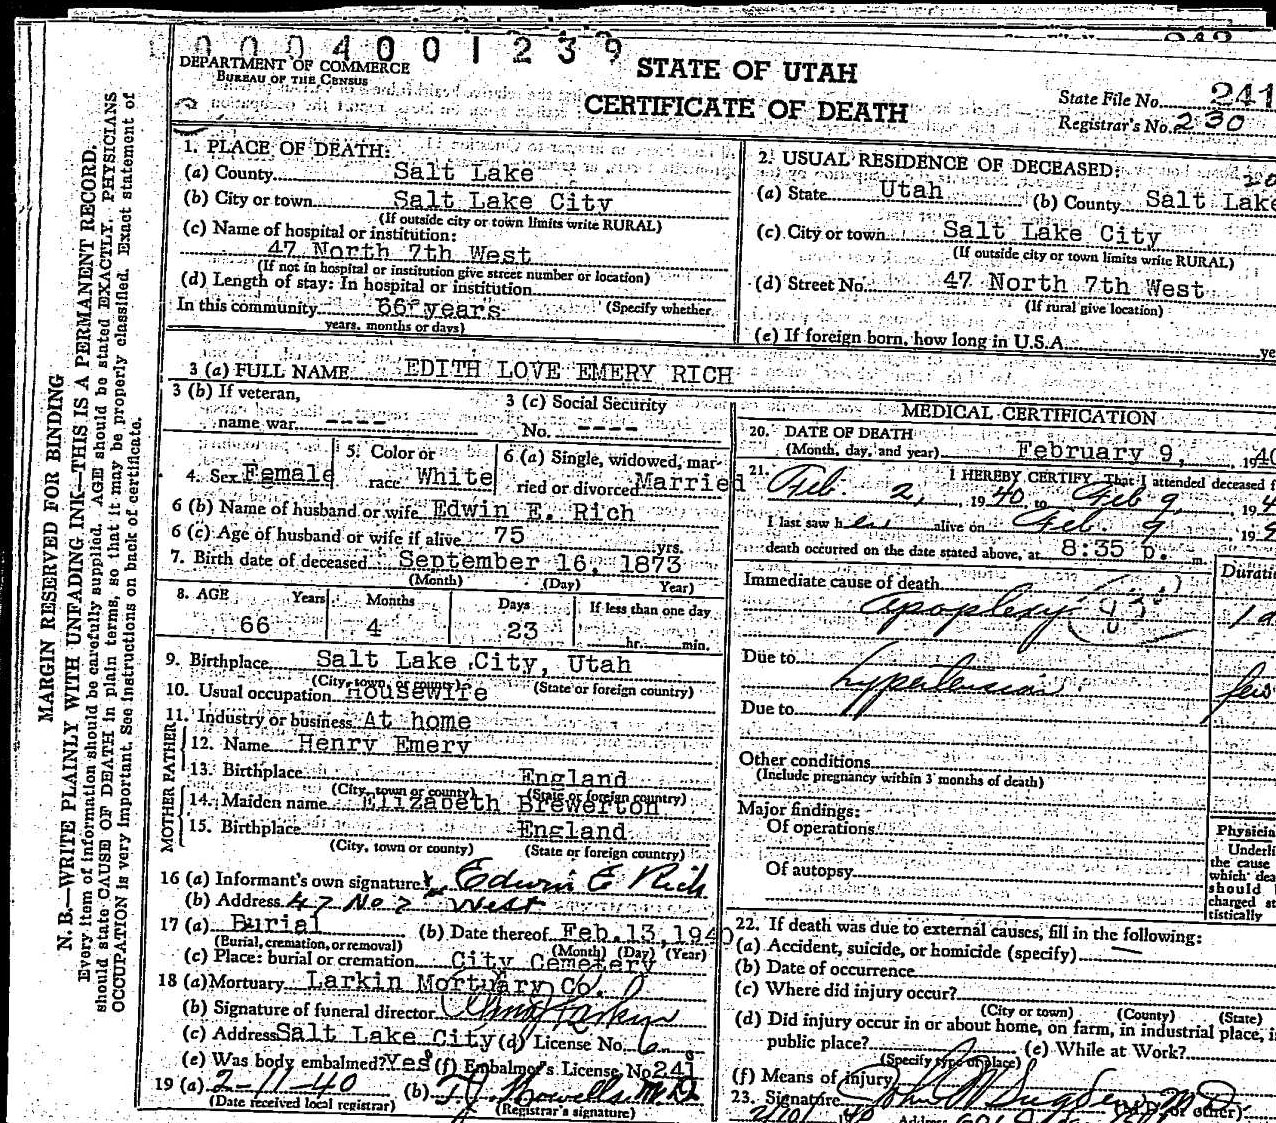 0004001239
DEPARTMENT OF COMMERCE
BUREAU OF THE CENSUS
STATE OF UTAH
CERTIFICATE OF DEATH
State File No. 241
Registrar's No. 230
MARGIN RESERVED FOR BINDING
N. B.—WRITE PLAINLY WITH UNFADING INK—THIS IS A PERMANENT RECORD.
Every item of information should be carefully supplied. AGE should be stated EXACTLY. PHYSICIANS
should state CAUSE OF DEATH in plain terms, so that it may be properly classified. Exact statement of
OCCUPATION is very important. See instructions on back of certificate.
1. PLACE OF DEATH:
(a) County Salt Lake
(b) City or town Salt Lake City
(If outside city or town limits write RURAL)
(c) Name of hospital or institution:
47 North 7th West
(If not in hospital or institution give street number or location)
(d) Length of stay: In hospital or institution
In this community 66 years (Specify whether
years, months or days)
2. USUAL RESIDENCE OF DECEASED:
(a) State Utah (b) County Salt Lake
(c) City or town Salt Lake City
(If outside city or town limits write RURAL)
(d) Street No. 47 North 7th West
(If rural give location)
(e) If foreign born, how long in U.S.A. ye
3 (a) FULL NAME EDITH LOVE EMERY RICH
3 (b) If veteran,
name war ----
3 (c) Social Security
No. ----
4. Sex Female
5. Color or
race White
6 (a) Single, widowed, mar-
ried or divorced Married
6 (b) Name of husband or wife Edwin E. Rich
6 (c) Age of husband or wife if alive 75 yrs.
7. Birth date of deceased September 16, 1873
(Month) (Day) Year)
8. AGE Years Months Days If less than one day
66 4 23 hr. min.
9. Birthplace Salt Lake City, Utah
(City, town, or county) (State or foreign country)
10. Usual occupation Housewife
11. Industry or business At home
FATHER
12. Name Henry Emery
13. Birthplace England
(City, town or county) (State or foreign country)
MOTHER
14. Maiden name Elizabeth Brewerton
15. Birthplace England
(City, town or county) (State or foreign country)
16 (a) Informant's own signature x Edwin E Rich
(b) Address 47 No 7 West
17 (a) Burial (b) Date thereof Feb.13,1940
(Burial, cremation, or removal) (Month) (Day) (Year)
(c) Place: burial or cremation City Cemetery
18 (a) Mortuary Larkin Mortuary Co.
(b) Signature of funeral director Larkin
(c) Address Salt Lake City (d) License No. 6
(e) Was body embalmed? Yes (f) Embalmer's License No 241
19 (a) 2-11-40 (b) T J Howells M.D.
(Date received local registrar) (Registrar's signature)
MEDICAL CERTIFICATION
20. DATE OF DEATH
(Month, day, and year) February 9, 1940
21. I HEREBY CERTIFY, That I attended deceased f
Feb. 2, 1940, to Feb 9, 194
I last saw her alive on Feb. 9, 19
death occurred on the date stated above, at 8:35 p. m.
Immediate cause of death Durati
apoplexy
Due to
hypertension
Due to
Other conditions
(Include pregnancy within 3 months of death)
Major findings:
Of operations
Of autopsy
Physicia
Underli
the cause
which dea
should
charged st
tistically
22. If death was due to external causes, fill in the following:
(a) Accident, suicide, or homicide (specify)
(b) Date of occurrence
(c) Where did injury occur?
(City or town) (County) (State)
(d) Did injury occur in or about home, on farm, in industrial place, i
public place? (e) While at Work?
(Specify type of place)
(f) Means of injury
23. Signature John M Sugden M.D. or other)
Address